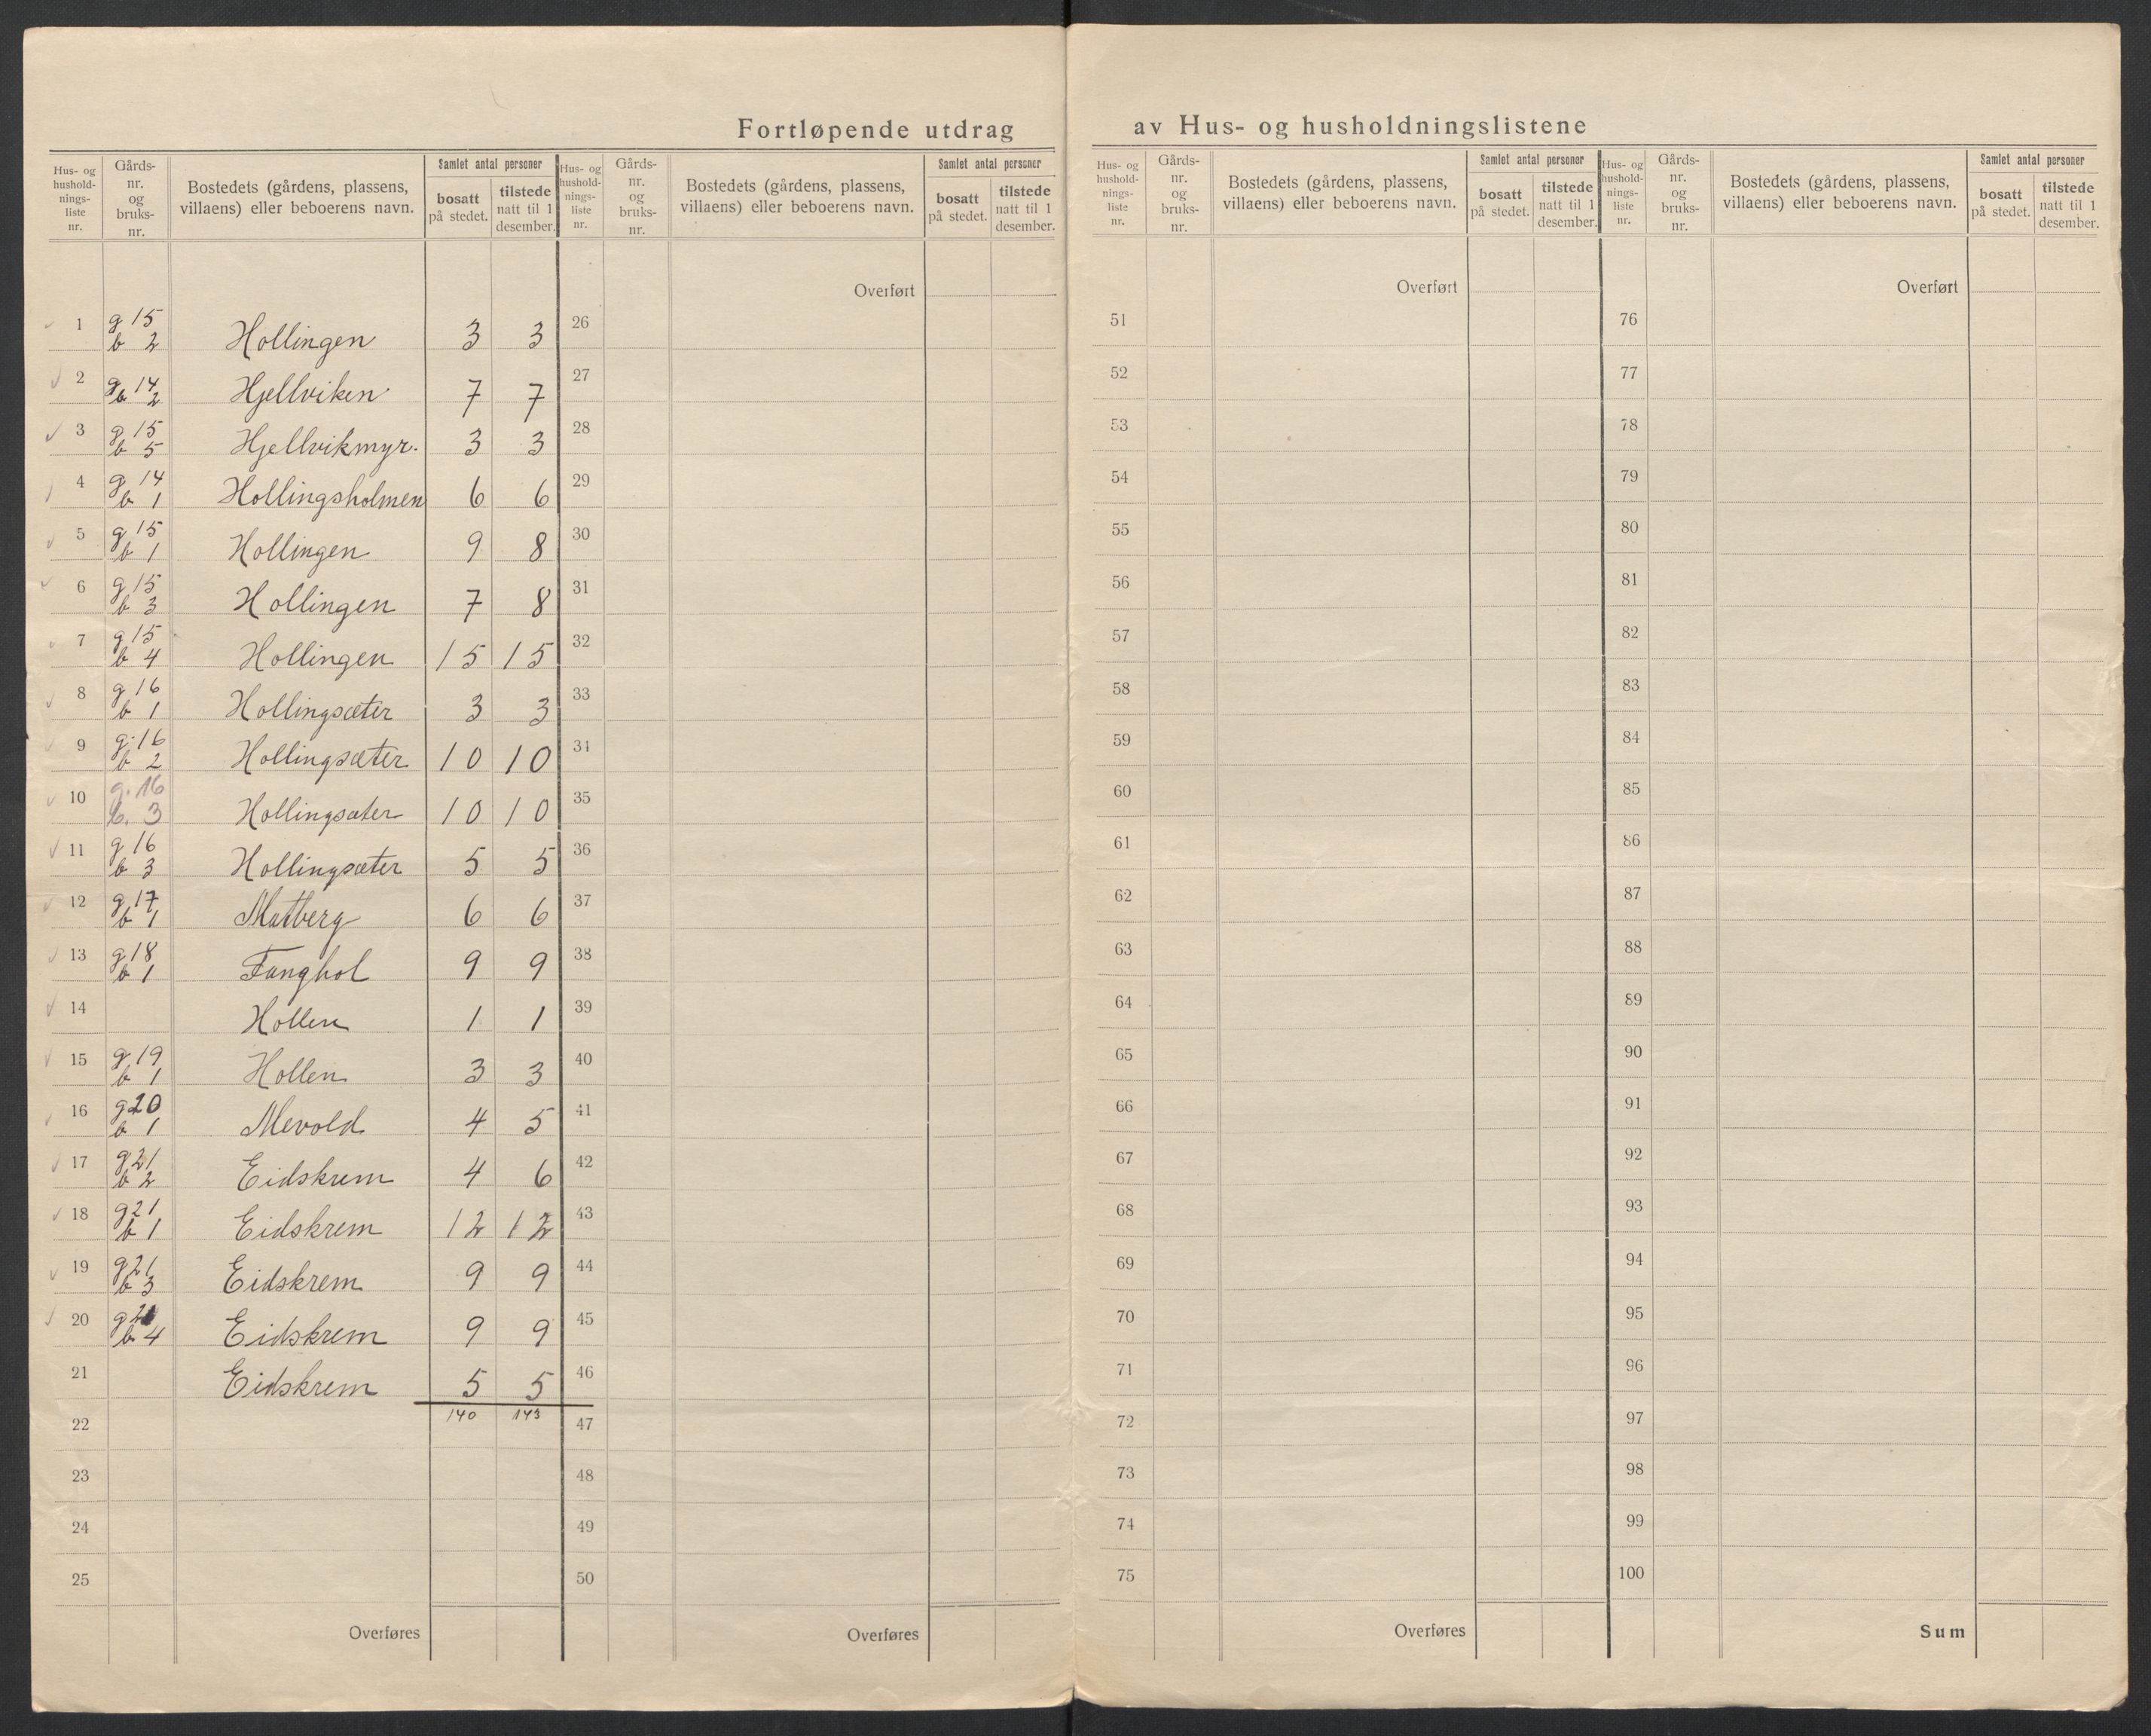 Fortløpende utdrag av Hus- og husholdningslistene
Hus- og hushold- nings- liste nr. | Gårds- nr. og bruks- nr. | Bostedets (gårdens, plassens, villaens) eller beboerens navn. | Samlet antal personer | bosatt på stedet. | tilstede natt til 1 desember.
Hus- og hushold- nings- liste nr. | Gårds- nr. og bruks- nr. | Bostedets (gårdens, plassens, villaens) eller beboerens navn. | Samlet antal personer | bosatt på stedet. | tilstede natt til 1 desember.
Hus- og hushold- nings- liste nr. | Gårds- nr. og bruks- nr. | Bostedets (gårdens, plassens, villaens) eller beboerens navn. | Samlet antal personer | bosatt på stedet. | tilstede natt til 1 desember.
Hus- og hushold- nings- liste nr. | Gårds- nr. og bruks- nr. | Bostedets (gårdens, plassens, villaens) eller beboerens navn. | Samlet antal personer | bosatt på stedet. | tilstede natt til 1 desember.
1 g 15 b 2 Hollingen 3 3
2 g 14 b 2 Hjellviken 7 7
3 g 15 b 5 Hjellvikmyr. 3 3
4 g 14 b 1 Hollingsholmen 6 6
5 g 15 b 1 Hollingen 9 8
6 g 15 b 3 Hollingen 7 8
7 g 15 b 4 Hollingen 15 15
8 g 16 b 1 Hollingsæter 3 3
9 g. 16 b 2 Hollingsæter 10 10
10 g. 16 b. 3 Hollingsæter 10 10
11 g 16 b 3 Hollingsæter 5 5
12 g 17 b 1 Matberg 6 6
13 g 18 b 1 Fanghol 9 9
14 Hollen 1 1
15 g 19 b 1 Hollen 3 3
16 g 20 b 1 Mevold 4 5
17 g 21 b 2 Eidskrem 4 6
18 g 21 b 1 Eidskrem 12 12
19 g 21 b 3 Eidskrem 9 9
20 g 21 b 4 Eidskrem 9 9
21 Eidskrem 5 5
22 140 143
23
24
25
Overføres
Overført
26
27
28
29
30
31
32
33
34
35
36
37
38
39
40
41
42
43
44
45
46
47
48
49
50
Overføres
Overført
51
52
53
54
55
56
57
58
59
60
61
62
63
64
65
66
67
68
69
70
71
72
73
74
75
Overføres
Overført
76
77
78
79
80
81
82
83
84
85
86
87
88
89
90
91
92
93
94
95
96
97
98
99
100
Sum